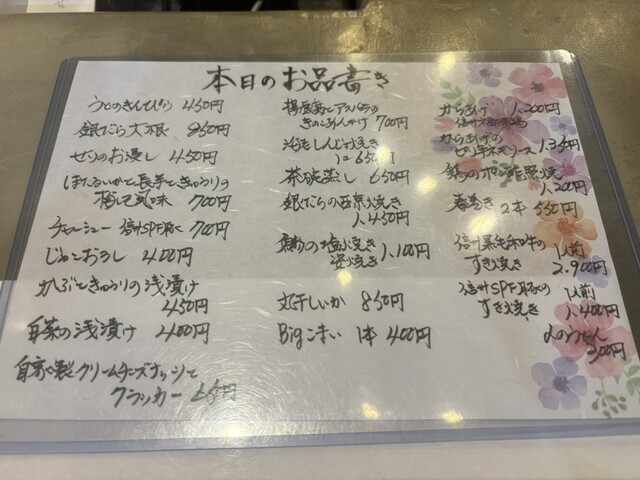 本日のお品書き
うどのきんぴら 450円
銀だら大根 850円
せりのお浸し 450円
ほたるいかと長芋ときゅうりの
梅巳風味 700円
チャーシュー 信州SPF豚 700円
じゃこおろし 400円
かぶときゅうりの浅漬け
450円
白菜の浅漬け 400円
自家製クリームチーズナッツと
クラッカー
揚厚揚とアスパラの
きのこあんかけ 700円
しんじょ焼き
650円
茶碗蒸し 650円
銀だらの西京焼き
1,450円
塩焼き
1,100円
丸干しいか 850円
Bigこまい 1本 400円
からあげ 1,200円
信州
からあげの
ソース 1,350円
1,200円
春巻き 2本 550円
信州黒毛和牛の 1人前
すき焼き 2,900円
信州SPF豚の 1人前
すき焼き 1,400円
〆のうどん
300円